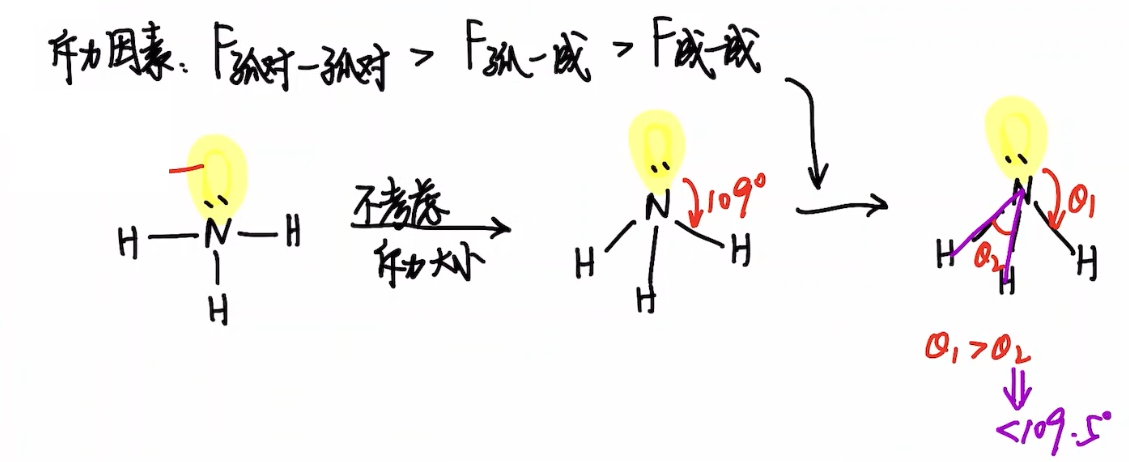 斥力因素: F孤对-孤对 > F孤-成 > F成-成
H-N-H
H
不考虑
斥力大小
N
109°
H
H
H
N
θ1
H
θ2
H
H
θ1>θ2
⇓
<109.5°